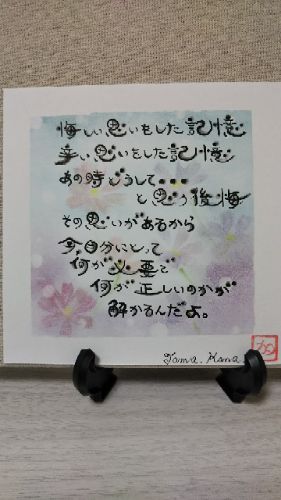 悔しい思いをした記憶
辛い思いをした記憶
あの時どうして・・・
と思う後悔
その思いがあるから
今自分にとって
何が必要で
何が正しいのかが
解かるんだよ。
Tama. Kana